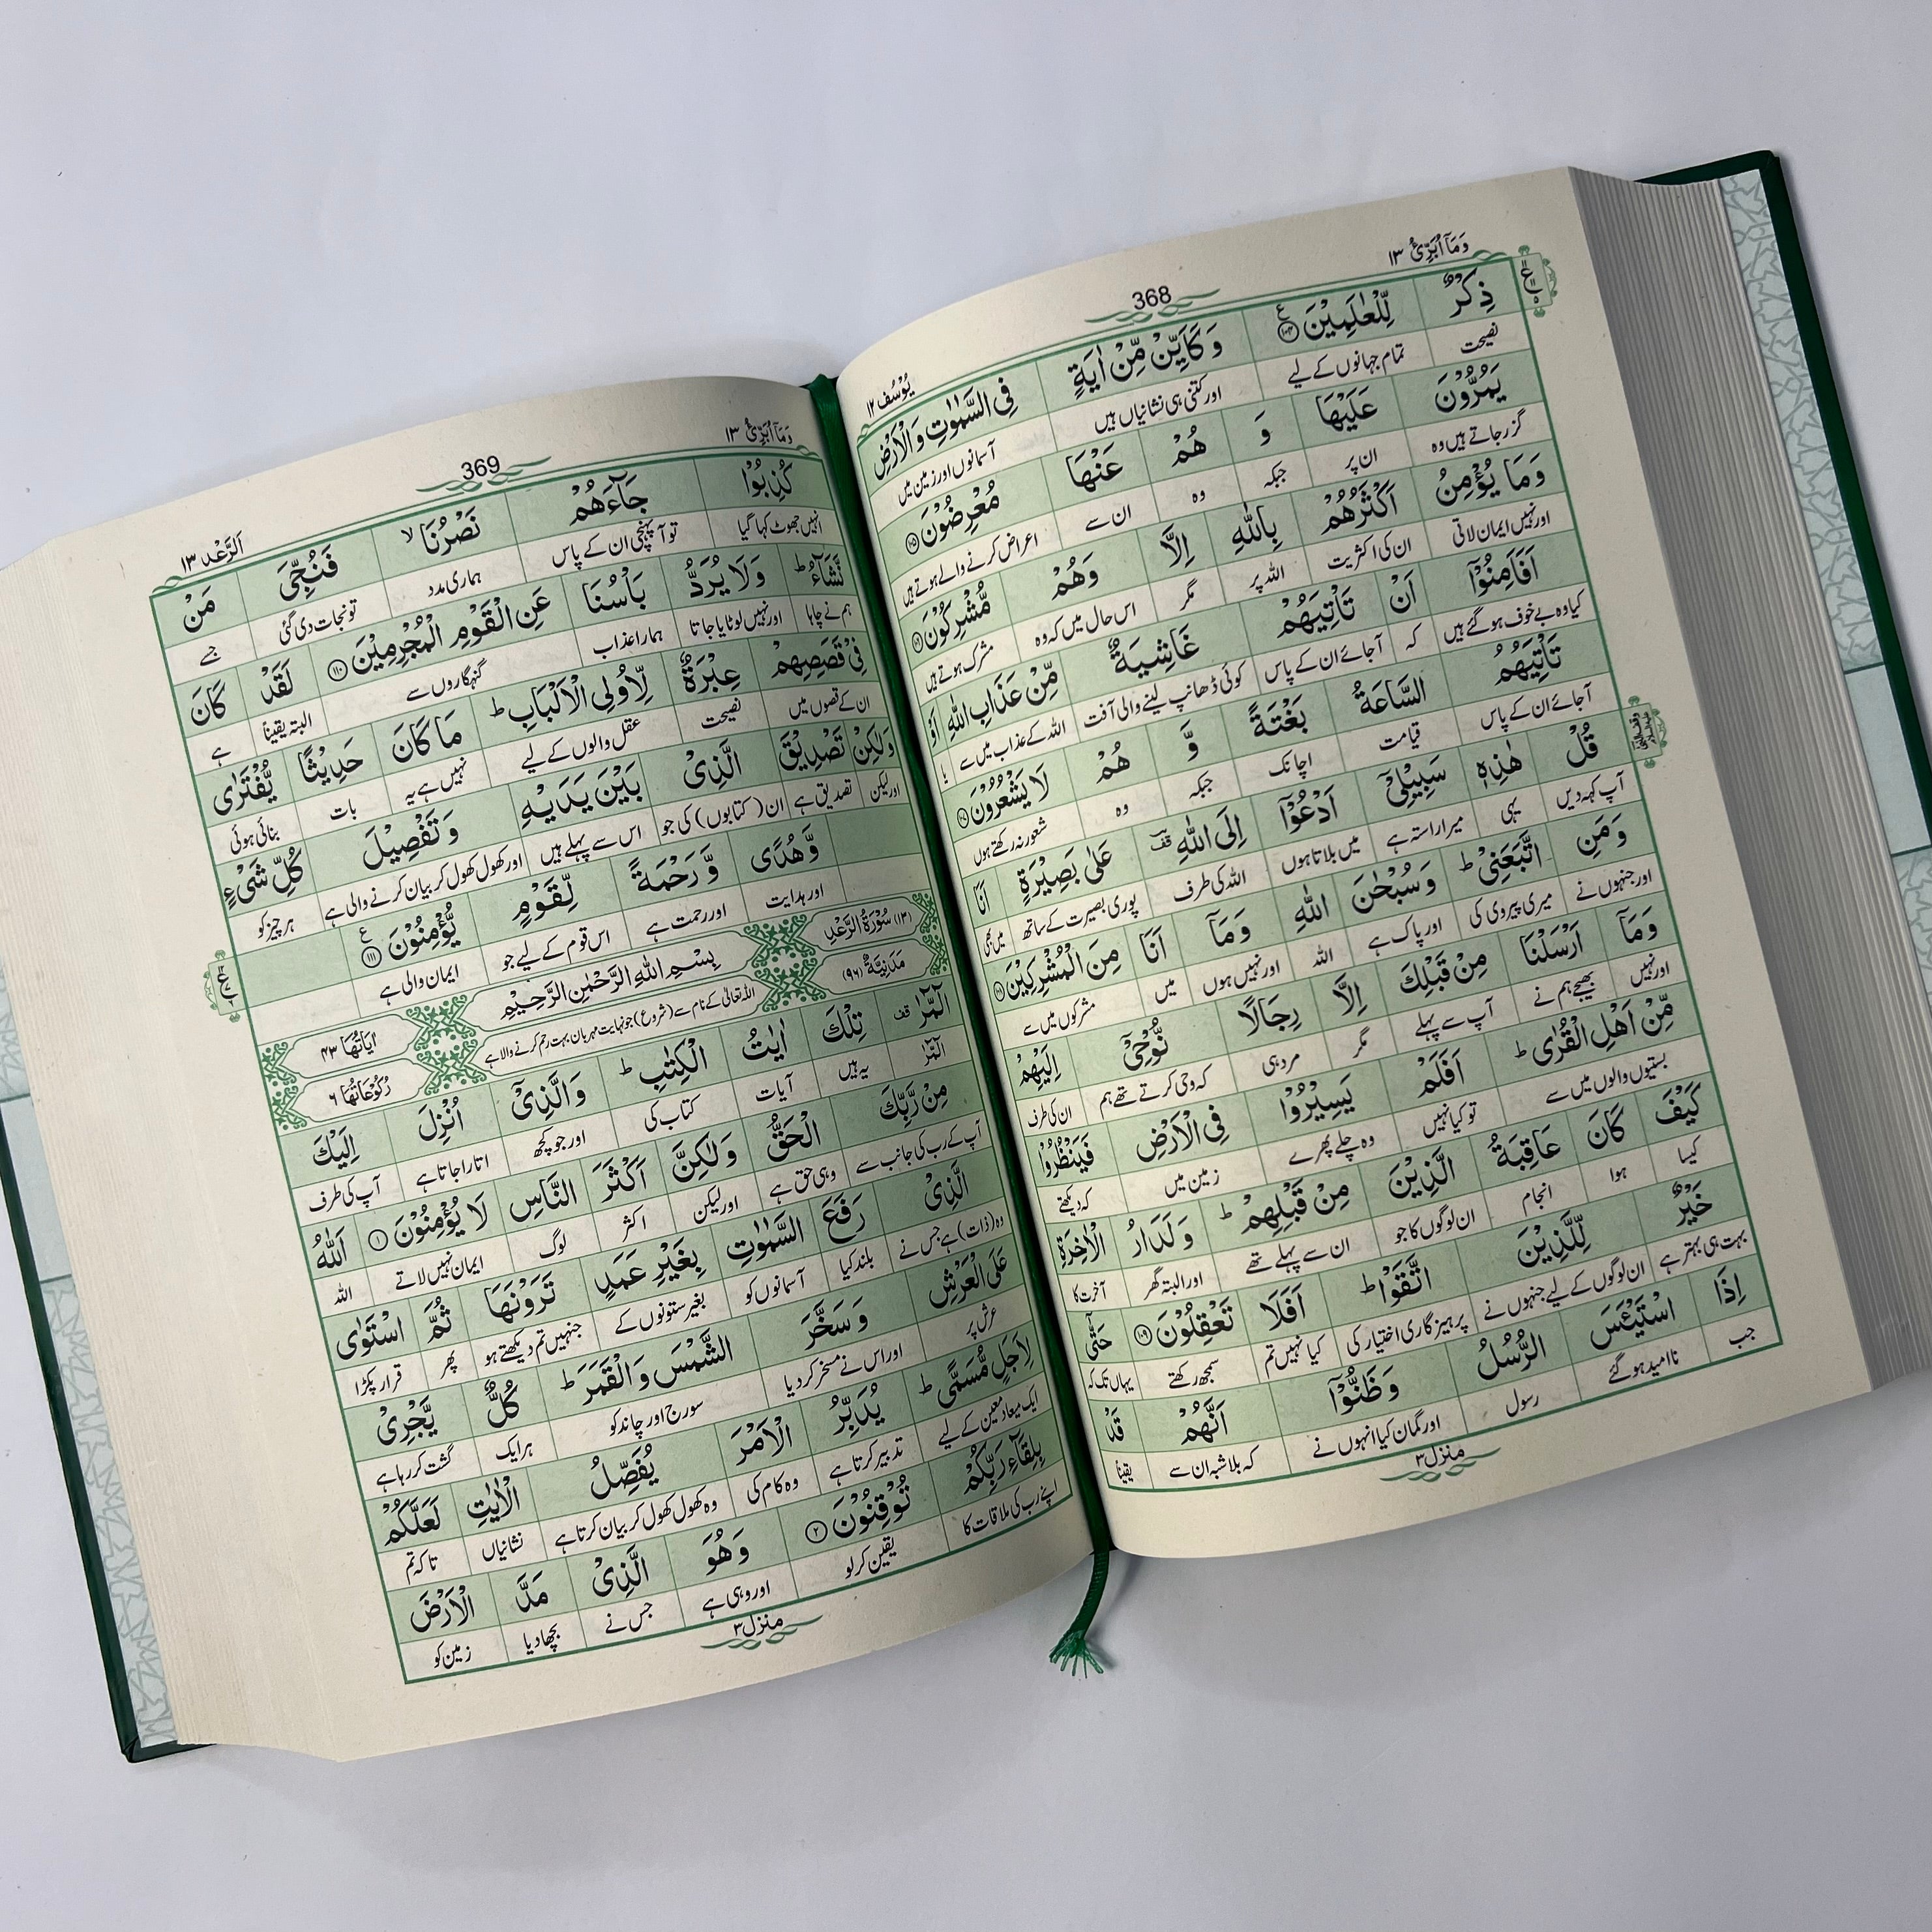 وَمَآ اُبَرِّئُ ۱۳
368
یُوْسُف ۱۲
ذِكْرٌ لِّلْعٰلَمِیْنَ ۝۱۰۴ وَكَاَیِّنْ مِّنْ اٰیَةٍ فِی السَّمٰوٰتِ وَالْاَرْضِ
نصیحت تمام جہانوں کے لیے اور کتنی ہی نشانیاں ہیں آسمانوں اور زمین میں
یَمُرُّوْنَ عَلَیْهَا وَ هُمْ عَنْهَا مُعْرِضُوْنَ ۝۱۰۵
گزر جاتے ہیں وہ ان پر جبکہ وہ ان سے اعراض کرنے والے ہوتے ہیں
وَمَا یُؤْمِنُ اَكْثَرُهُمْ بِاللّٰهِ اِلَّا وَهُمْ مُّشْرِكُوْنَ ۝۱۰۶
اور نہیں ایمان لاتی ان کی اکثریت اللہ پر مگر اس حال میں کہ وہ مشرک ہوتے ہیں
اَفَاَمِنُوْٓا اَنْ تَاْتِیَهُمْ غَاشِیَةٌ مِّنْ عَذَابِ اللّٰهِ اَوْ
کیا وہ بے خوف ہو گئے ہیں کہ آجائے ان کے پاس کوئی ڈھانپ لینے والی آفت اللہ کے عذاب میں سے یا
تَاْتِیَهُمُ السَّاعَةُ بَغْتَةً وَّ هُمْ لَا یَشْعُرُوْنَ ۝۱۰۷
آجائے ان کے پاس قیامت اچانک جبکہ وہ شعور نہ رکھتے ہوں
قُلْ هٰذِهٖ سَبِیْلِیْٓ اَدْعُوْٓا اِلَی اللّٰهِ قف عَلٰی بَصِیْرَةٍ اَنَا
آپ کہہ دیں یہی میرا راستہ ہے میں بلاتا ہوں اللہ کی طرف پوری بصیرت کے ساتھ میں بھی
وَمَنِ اتَّبَعَنِیْ ط وَسُبْحٰنَ اللّٰهِ وَمَآ اَنَا مِنَ الْمُشْرِكِیْنَ ۝۱۰۸
اور جنہوں نے میری پیروی کی اور پاک ہے اللہ اور نہیں ہوں میں مشرکوں میں سے
وَمَآ اَرْسَلْنَا مِنْ قَبْلِكَ اِلَّا رِجَالًا نُّوْحِیْٓ اِلَیْهِمْ
اور نہیں بھیجے ہم نے آپ سے پہلے مگر مرد ہی کہ وحی کرتے تھے ہم ان کی طرف
مِّنْ اَهْلِ الْقُرٰی ط اَفَلَمْ یَسِیْرُوْا فِی الْاَرْضِ فَیَنْظُرُوْا
بستیوں والوں میں سے تو کیا نہیں وہ چلے پھرے زمین میں کہ دیکھتے
كَیْفَ كَانَ عَاقِبَةُ الَّذِیْنَ مِنْ قَبْلِهِمْ ط وَلَدَارُ الْاٰخِرَةِ
کیسا ہوا انجام ان لوگوں کا جو ان سے پہلے تھے اور البتہ گھر آخرت کا
خَیْرٌ لِّلَّذِیْنَ اتَّقَوْا ط اَفَلَا تَعْقِلُوْنَ ۝۱۰۹ حَتّٰٓی
بہت ہی بہتر ہے ان لوگوں کے لیے جنہوں نے پرہیزگاری اختیار کی کیا نہیں تم سمجھ رکھتے یہاں تک کہ
اِذَا اسْتَیْـَٔسَ الرُّسُلُ وَظَنُّوْٓا اَنَّهُمْ قَدْ
جب ناامید ہو گئے رسول اور گمان کیا انہوں نے کہ بلاشبہ ان سے یقیناً
منزل ۳
وَمَآ اُبَرِّئُ ۱۳
369
اَلرَّعْد ۱۳
كُذِبُوْا جَآءَهُمْ نَصْرُنَا لا فَنُجِّیَ مَنْ
انہیں جھوٹ کہا گیا تو آ پہنچی ان کے پاس ہماری مدد تو نجات دی گئی جسے
نَّشَآءُ ط وَلَا یُرَدُّ بَاْسُنَا عَنِ الْقَوْمِ الْمُجْرِمِیْنَ ۝۱۱۰ لَقَدْ كَانَ
ہم نے چاہا اور نہیں لوٹایا جاتا ہمارا عذاب گنہگاروں سے البتہ یقیناً ہے
فِیْ قَصَصِهِمْ عِبْرَةٌ لِّاُولِی الْاَلْبَابِ ط مَا كَانَ حَدِیْثًا یُّفْتَرٰی
ان کے قصوں میں نصیحت عقل والوں کے لیے نہیں ہے یہ بات بنائی ہوئی
وَلٰكِنْ تَصْدِیْقَ الَّذِیْ بَیْنَ یَدَیْهِ وَتَفْصِیْلَ كُلِّ شَیْءٍ
اور لیکن تصدیق ہے ان (کتابوں) کی جو اس سے پہلے ہیں اور کھول کھول کر بیان کرنے والی ہے ہر چیز کو
وَّهُدًی وَّرَحْمَةً لِّقَوْمٍ یُّؤْمِنُوْنَ ۝۱۱۱
اور ہدایت اور رحمت ہے اس قوم کے لیے جو ایمان والی ہے
(۱۳) سُوْرَةُ الرَّعْدِ بِسْمِ اللّٰهِ الرَّحْمٰنِ الرَّحِیْمِ اٰیَاتُهَا ۴۳
مَدَنِیَّةٌ (۹۶) اللہ تعالیٰ کے نام سے (شروع) جو نہایت مہربان بہت رحم کرنے والا ہے رُكُوْعَاتُهَا ۶
الٓمّٓرٰ قف تِلْكَ اٰیٰتُ الْكِتٰبِ ط وَالَّذِیْٓ اُنْزِلَ اِلَیْكَ
الٓمّٓرٰ یہ ہیں آیات کتاب کی اور جو کچھ اتارا جاتا ہے آپ کی طرف
مِنْ رَّبِّكَ الْحَقُّ وَلٰكِنَّ اَكْثَرَ النَّاسِ لَا یُؤْمِنُوْنَ ۝۱ اَللّٰهُ
آپ کے رب کی جانب سے وہی حق ہے اور لیکن اکثر لوگ ایمان نہیں لاتے اللہ
الَّذِیْ رَفَعَ السَّمٰوٰتِ بِغَیْرِ عَمَدٍ تَرَوْنَهَا ثُمَّ اسْتَوٰی
وہ (ذات) ہے جس نے بلند کیا آسمانوں کو بغیر ستونوں کے جنہیں تم دیکھتے ہو پھر قرار پکڑا
عَلَی الْعَرْشِ وَسَخَّرَ الشَّمْسَ وَالْقَمَرَ ط كُلٌّ یَّجْرِیْ
عرش پر اور اس نے مسخر کر دیا سورج اور چاند کو ہر ایک گشت کر رہا ہے
لِاَجَلٍ مُّسَمًّی ط یُدَبِّرُ الْاَمْرَ یُفَصِّلُ الْاٰیٰتِ لَعَلَّكُمْ
ایک میعاد معین کے لیے تدبیر کرتا ہے وہ کام کی وہ کھول کھول کر بیان کرتا ہے نشانیاں تاکہ تم
بِلِقَآءِ رَبِّكُمْ تُوْقِنُوْنَ ۝۲ وَهُوَ الَّذِیْ مَدَّ الْاَرْضَ
اپنے رب کی ملاقات کا یقین کر لو اور وہی ہے جس نے بچھا دیا زمین کو
منزل ۳